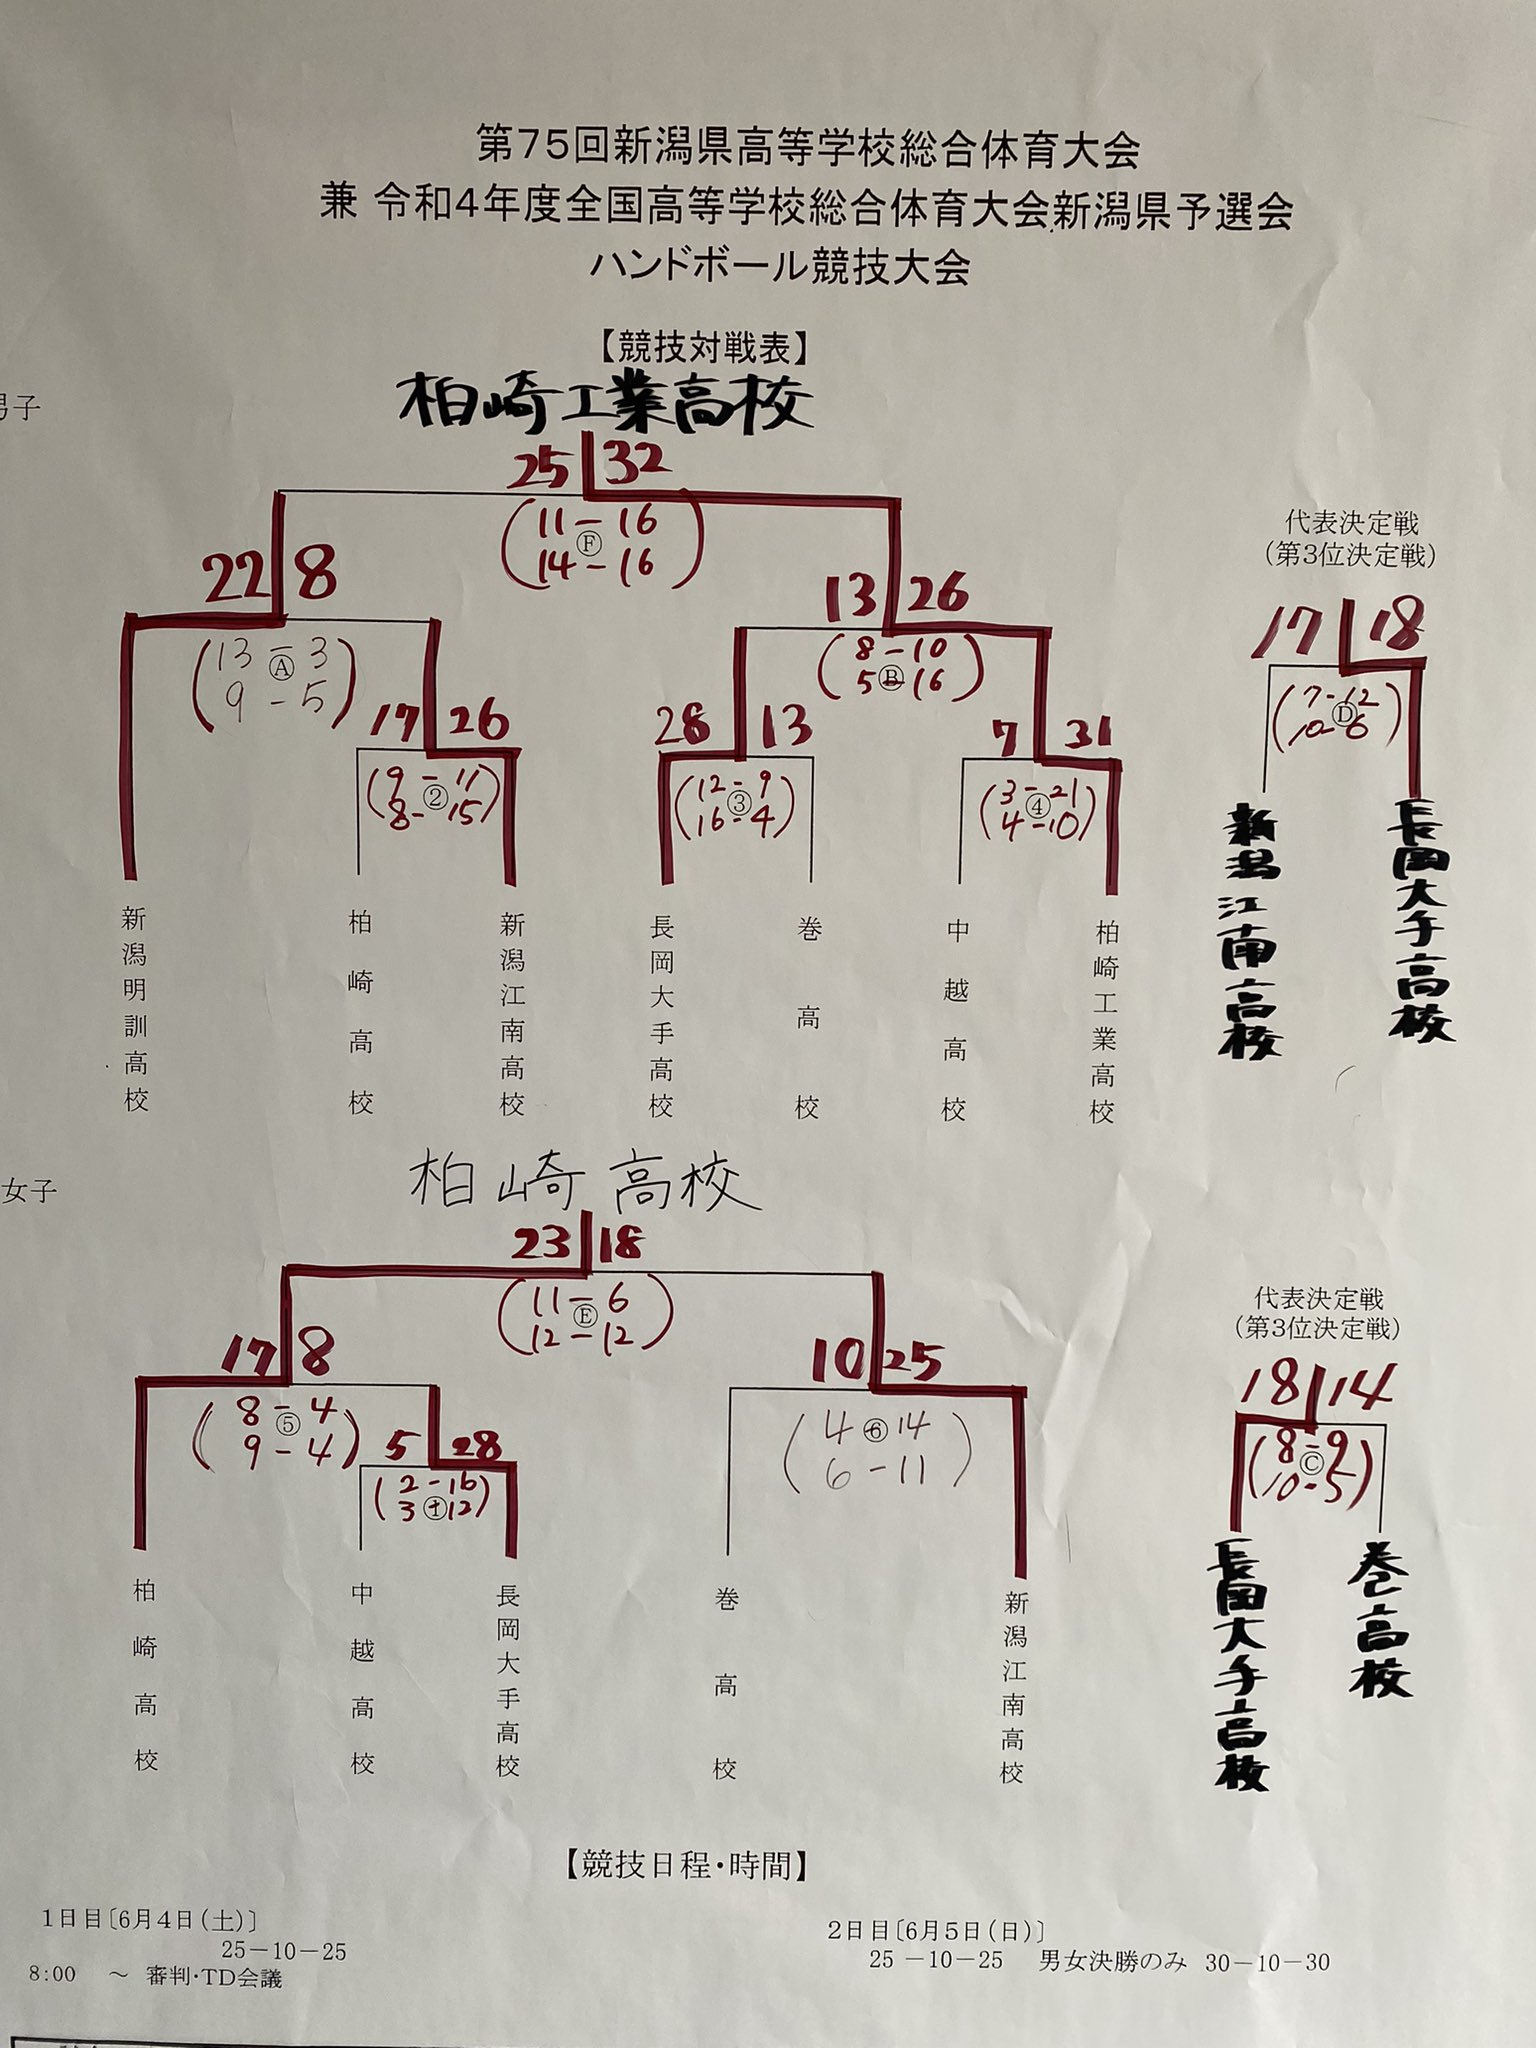 第75回新潟県高等学校総合体育大会
兼 令和4年度全国高等学校総合体育大会新潟県予選会
ハンドボール競技大会
【競技対戦表】
男子
柏崎工業高校
25 32
11-16
Ⓕ
14-16
22 8
13-3
Ⓐ
9-5
13 26
8-10
Ⓑ
5-16
17 26
9-11
②
8-15
28 13
12-9
③
16-4
7 31
3-21
④
4-10
新潟明訓高校
柏崎高校
新潟江南高校
長岡大手高校
巻高校
中越高校
柏崎工業高校
代表決定戦
(第3位決定戦)
17 18
7-12
Ⓓ
10-6
新潟江南高校
長岡大手高校
女子
柏崎高校
23 18
11-6
Ⓔ
12-12
17 8
8-4
⑤
9-4
10 25
4-14
⑥
6-11
5 28
2-16
①
3-12
柏崎高校
中越高校
長岡大手高校
巻高校
新潟江南高校
代表決定戦
(第3位決定戦)
18 14
8-9
Ⓒ
10-5
長岡大手高校
巻高校
【競技日程・時間】
1日目〔6月4日(土)〕
25-10-25
8:00 ~ 審判・TD会議
2日目〔6月5日(日)〕
25-10-25 男女決勝のみ 30-10-30